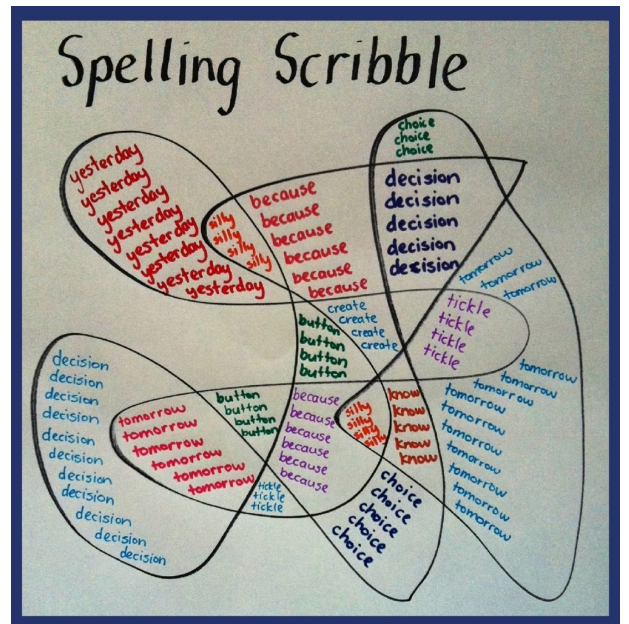 Spelling Scribble
yesterday
yesterday
yesterday
yesterday
yesterday
yesterday
yesterday
yesterday
silly
silly
silly
silly
because
because
because
because
because
because
choice
choice
choice
decision
decision
decision
decision
decision
tomorrow
tomorrow
tomorrow
create
create
create
create
tickle
tickle
tickle
tickle
button
button
button
button
decision
decision
decision
decision
decision
decision
decision
decision
decision
decision
decision
tomorrow
tomorrow
tomorrow
tomorrow
tomorrow
tomorrow
button
button
button
button
tickle
tickle
tickle
because
because
because
because
because
because
silly
silly
silly
silly
know
know
know
know
know
tomorrow
tomorrow
tomorrow
tomorrow
tomorrow
tomorrow
tomorrow
tomorrow
tomorrow
tomorrow
choice
choice
choice
choice
choice